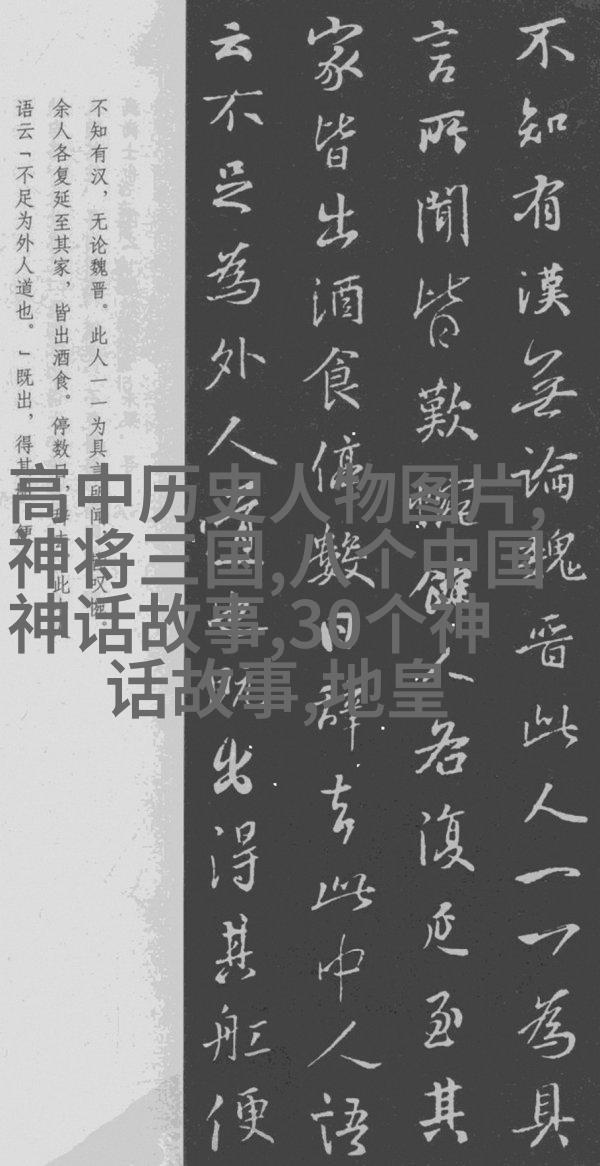 不知有漢無論魏晋此人一一為具
言所聞皆歎惋餘人各復延至其
家皆出酒食停數日辭去此中人語
云不足為外人道也既出得其舡便
不知有汉，无论魏晋。此人一一为具言所闻，皆叹惋。
余人各复延至其家，皆出酒食。停数日，辞去。此
语云「不足为外人道也。」既出，得其船，便
高中历史人物图片,
神将三国,八个中国
神话故事,30个神
话故事,地皇